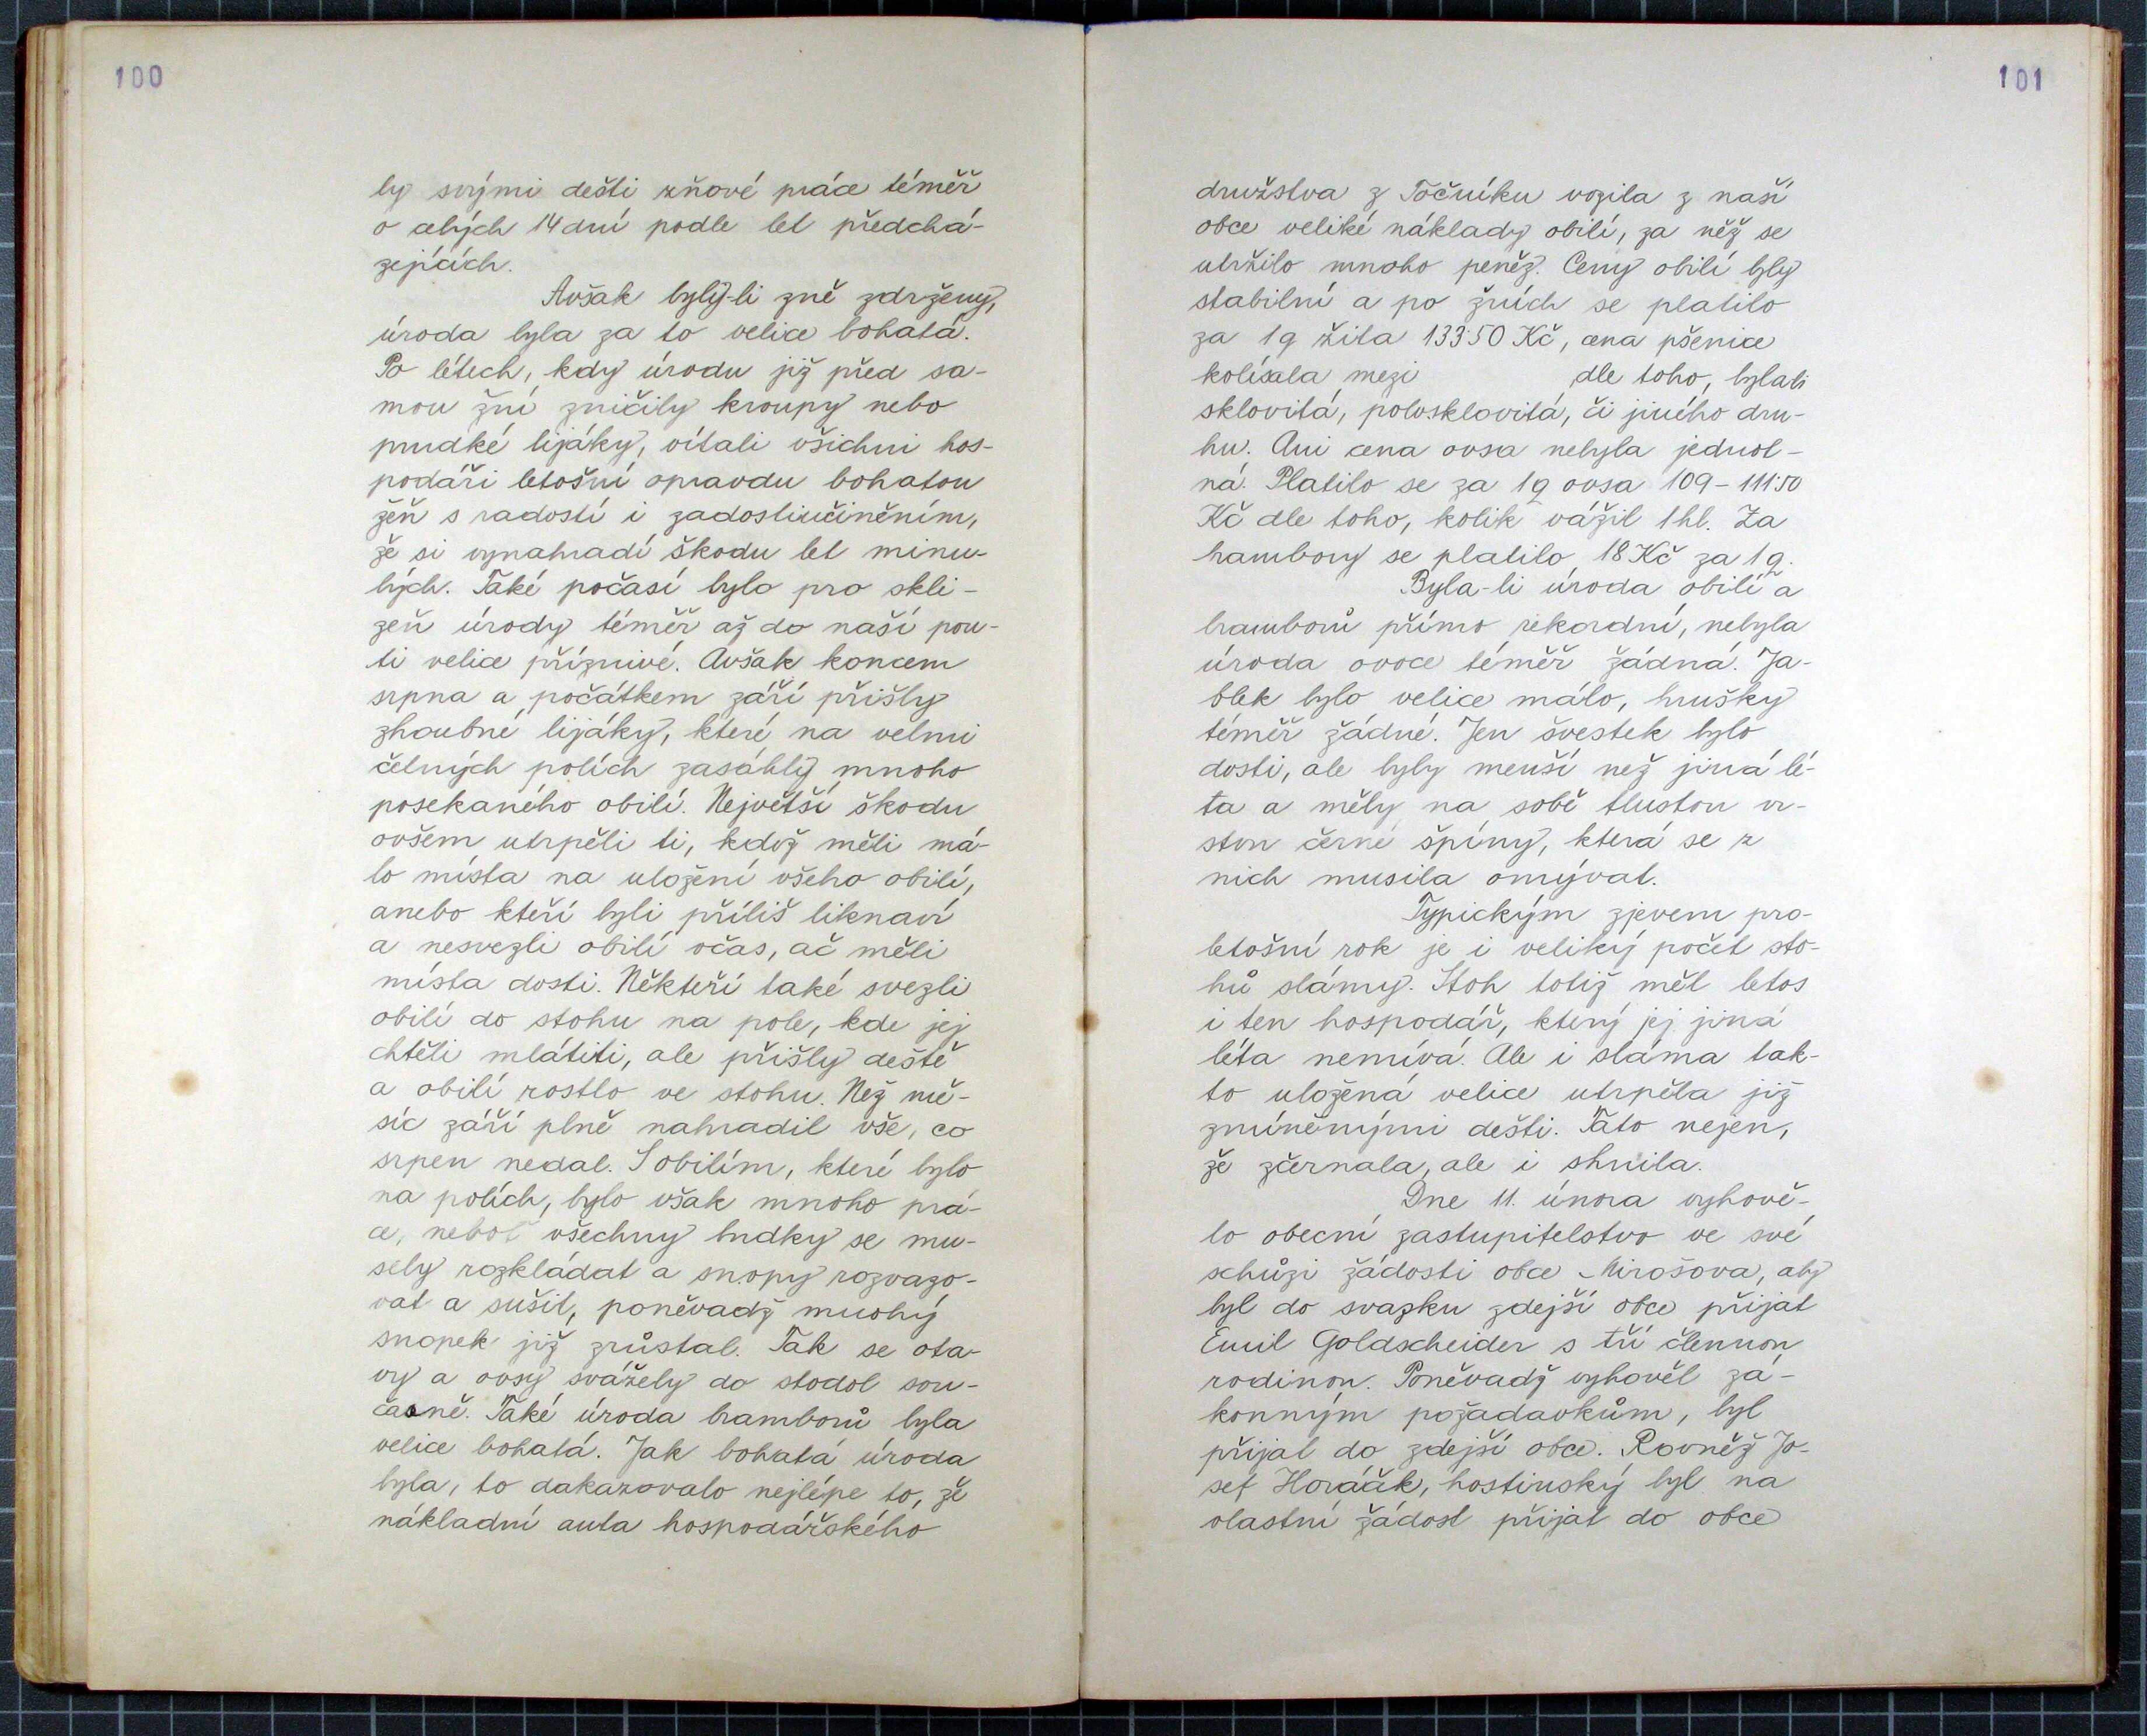 100
ly svými dešti žňové práce téměř
o celých 14 dní podle let předchá-
zejících.
Avšak byly-li žně zdrženy,
úroda byla za to velice bohatá.
Po létech, kdy úrodu již před sa-
mou žní zničily kroupy nebo
prudké lijáky, vítali všichni hos-
podáři letošní opravdu bohatou
žeň s radostí i zadostiučiněním,
že si vynahradí škodu let minu-
lých. Také počasí bylo pro skli-
zeň úrody téměř až do naší pou-
ti velice příznivé. Avšak koncem
srpna a počátkem září přišly
zhoubné lijáky, které na velmi
četných polích zasáhly mnoho
posekaného obilí. Největší škodu
ovšem utrpěli ti, kdož měli má-
lo místa na uložení všeho obilí,
anebo kteří byli příliš liknaví
a nesvezli obilí včas, ač měli
místa dosti. Někteří také svezli
obilí do stohu na pole, kde jej
chtěli mlátiti, ale přišly deště
a obilí rostlo ve stohu. Než mě-
síc září plně nahradil vše, co
srpen nedal. S obilím, které bylo
na polích, bylo však mnoho prá-
ce, neboť všechny budky se mu-
sely rozkládat a snopy rozvazo-
vat a sušit, poněvadž mnohý
snopek již zrůstal. Tak se ota-
vy a ovsy svážely do stodol sou-
časně. Také úroda bramborů byla
velice bohatá. Jak bohatá úroda
byla, to dokazovalo nejlépe to, že
nákladní auta hospodářského
101
družstva z Točníku vozila z naší
obce veliké náklady obilí, za něž se
utržilo mnoho peněz. Ceny obilí byly
stabilní a po žních se platilo
za 1q žita 133·50 Kč, cena pšenice
kolísala mezi dle toho, bylali
sklovitá, polosklovitá, či jiného dru-
hu. Ani cena ovsa nebyla jednot-
ná. Platilo se za 1q ovsa 109 - 111·50
Kč dle toho, kolik vážil 1 hl. Za
brambory se platilo 18 Kč za 1q.
Byla-li úroda obilí a
bramborů přímo rekordní, nebyla
úroda ovoce téměř žádná. Ja-
blek bylo velice málo, hrušky
téměř žádné. Jen švestek bylo
dosti, ale byly menší než jiná lé-
ta a měly na sobě tlustou vr-
stvu černé špíny, která se z
nich musila omývat.
Typickým zjevem pro-
letošní rok je i veliký počet sto-
hů slámy. Stoh totiž měl letos
i ten hospodář, který jej jiná
léta nemívá. Ale i sláma tak-
to uložená velice utrpěla již
zmíněnými dešti. Tato nejen,
že zčernala, ale i shnila.
Dne 11. února vyhově-
lo obecní zastupitelstvo ve své
schůzi žádosti obce Mirošova, aby
byl do svazku zdejší obce přijat
Emil Goldscheider s tří člennou
rodinou. Poněvadž vyhověl zá-
konným požadavkům, byl
přijat do zdejší obce. Rovněž Jo-
sef Horáček, hostinský byl na
vlastní žádost přijat do obce